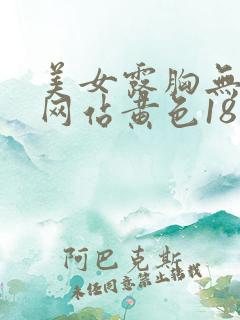 美女露胸無
网佔黄色18
阿巴克斯
未经同意禁止转载